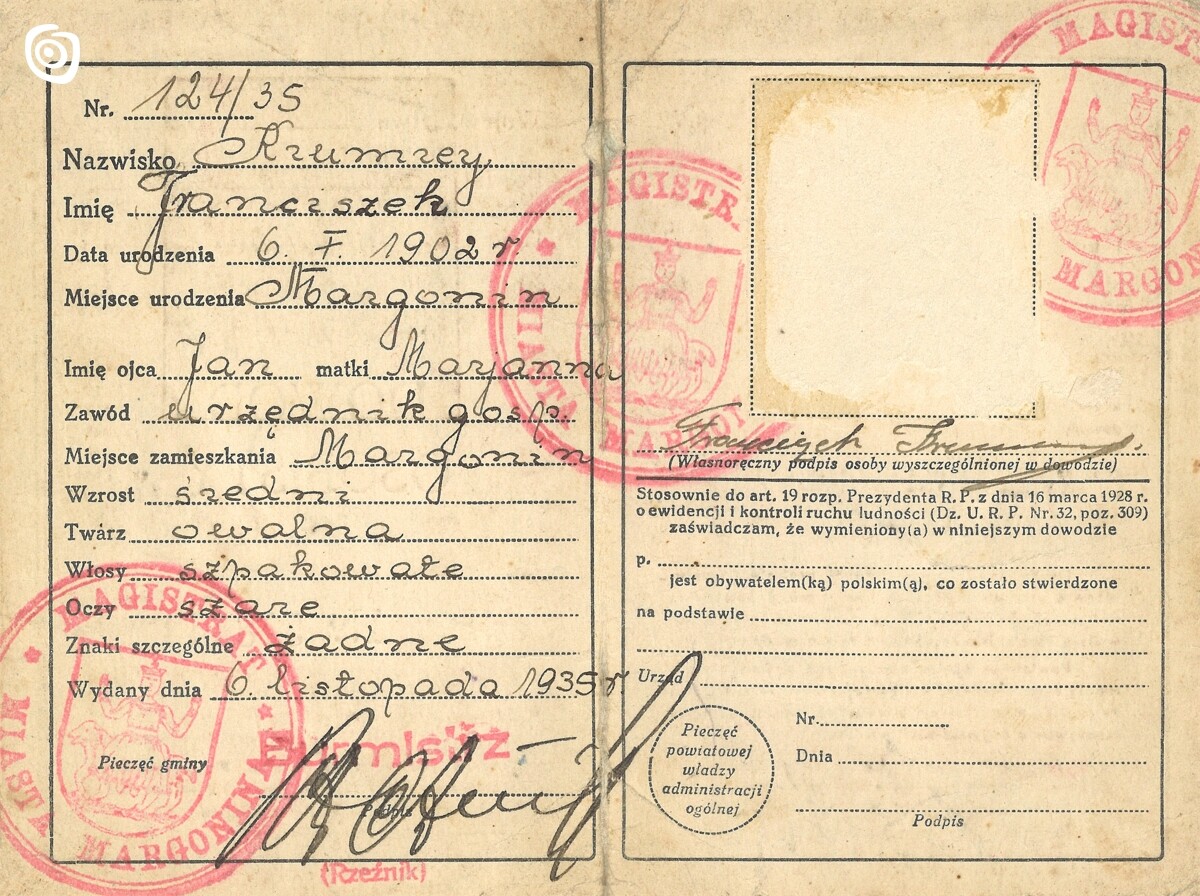 Nr. 124/35
Nazwisko Krumrey
Imię Franciszek
Data urodzenia 6. I. 1902 r
Miejsce urodzenia Margonin
Imię ojca Jan matki Marjanna
Zawód urzędnik gosp.
Miejsce zamieszkania Margonin
Wzrost średni
Twarz owalna
Włosy szpakowate
Oczy szare
Znaki szczególne żadne
Wydany dnia 6. listopada 1935 r
Pieczęć gminy
Burmistrz
(Rzeźnik)
MAGISTRAT MIASTA MARGONINA
MAGISTRA
MIASTA MARGONI
MAGIST
MARGON
Franciszek Krumrey.
(Własnoręczny podpis osoby wyszczególnionej w dowodzie)
Stosownie do art. 19 rozp. Prezydenta R. P. z dnia 16 marca 1928 r.
o ewidencji i kontroli ruchu ludności (Dz. U. R. P. Nr. 32, poz. 309)
zaświadczam, że wymieniony(a) w niniejszym dowodzie
p.
jest obywatelem(ką) polskim(ą), co zostało stwierdzone
na podstawie
Urząd
Pieczęć
powiatowej
władzy
administracji
ogólnej
Nr.
Dnia
Podpis